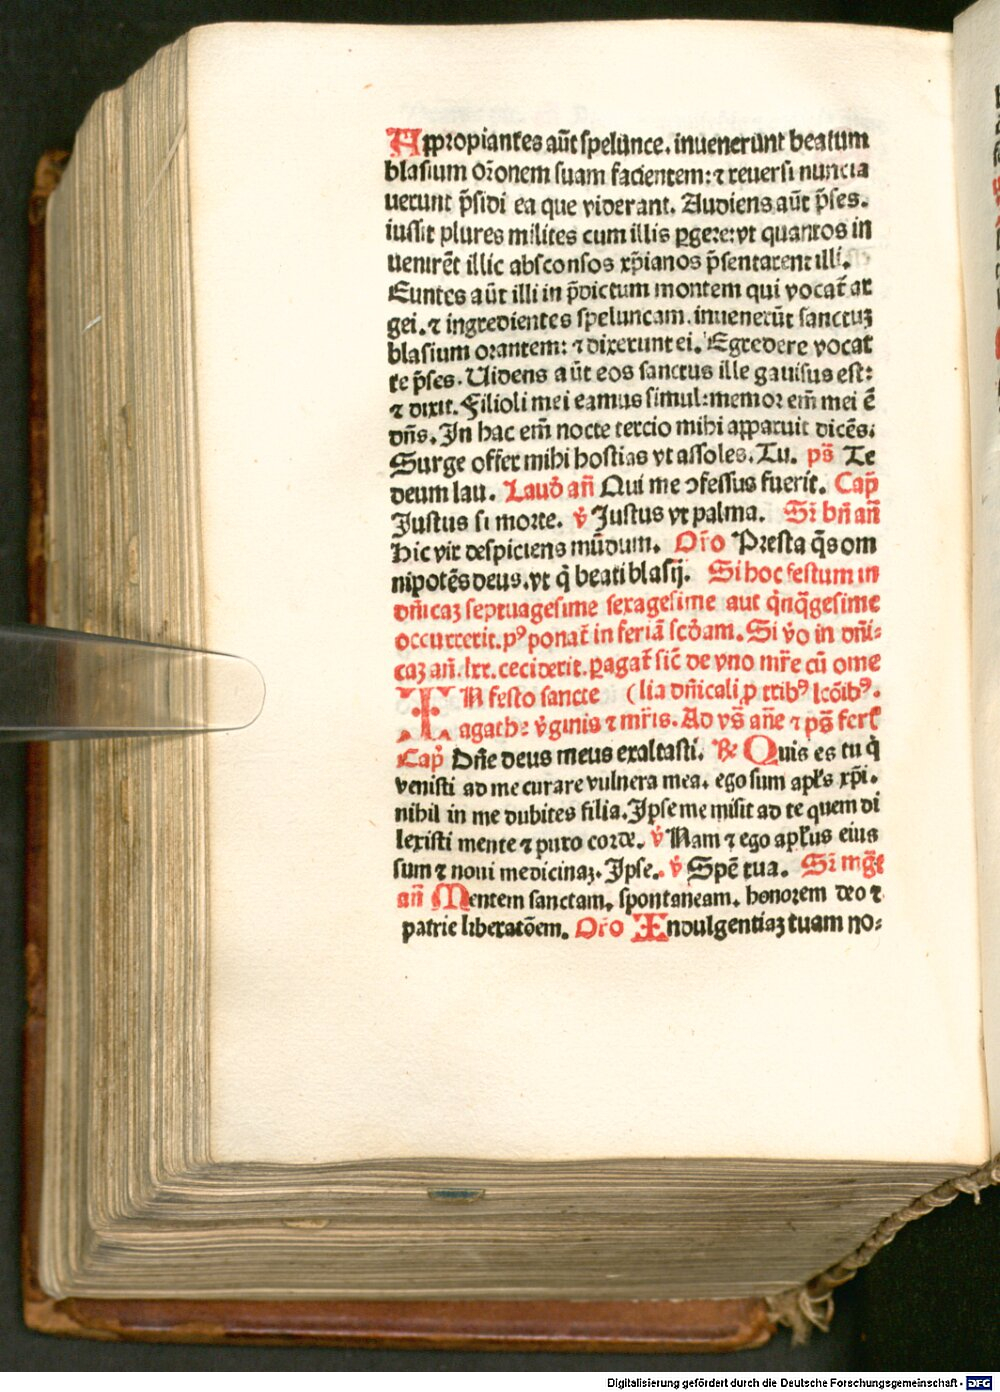 Appropiantes aūt spelunce. inuenerunt beatum
blasium or̄onem suam facientem: ⁊ reuersi nuncia
uerunt p̄sidi ea que viderant. Audiens aūt p̄ses.
iussit plures milites cum illis ꝑgere: vt quantos in
uenirēt illic absconsos xp̄ianos p̄sentarent illi.
Euntes aūt illi in p̄dictum montem qui vocat̄ ar
gei. ⁊ ingredientes speluncam. inuenerūt sanctuꝫ
blasium orantem: ⁊ dixerunt ei. Egredere vocat
te p̄ses. Uidens aūt eos sanctus ille gauisus est:
⁊ dixit. Filioli mei eamus simul: memor em̄ mei ē
dn̄s. In hac em̄ nocte tercio mihi apparuit dicēs.
Surge offer mihi hostias vt assoles. Tu. ps̄ Te
deum lau. Laud̄ an̄ Qui me ↄfessus fuerit. Cap̄
Justus si morte. v̄ Justus vt palma. Sr̄ bn̄ an̄
Hic vir despiciens mūdum. Or̄o Presta q̄s om
nipotēs deus. vt q̄ beati blasij. Si hoc festum in
dn̄icaꝫ septuagesime sexagesime aut q̄nq̄gesime
occurrerit. pꝰ ponat̄ in feriā scd̄am. Si v̄o in dn̄i-
caꝫ an̄. lxx. ceciderit. ꝑagat̄ sic̄ de vno mr̄e cū ome
IN festo sancte (lia dn̄icali ꝑ tribꝰ lcōibꝰ.
agathe v̄ginis ⁊ mr̄is. Ad vs̄ an̄e ⁊ ps̄ fert̄
Cap̄ Dn̄e deus meus exaltasti. ℟ Quis es tu q̄
venisti ad me curare vulnera mea. ego sum apl̄s xp̄i.
nihil in me dubites filia. Ipse me misit ad te quem di
lexisti mente ⁊ puro corde. v̄ Nam ⁊ ego apl̄us eius
sum ⁊ noui medicinaꝫ. Ipse. v̄ Spē tua. Sr̄ mḡt
an̄ Mentem sanctam, spontaneam, honorem deo ⁊
patrie liberatōem. Or̄o Indulgentiaꝫ tuam no-
Digitalisierung gefördert durch die Deutsche Forschungsgemeinschaft - DFG